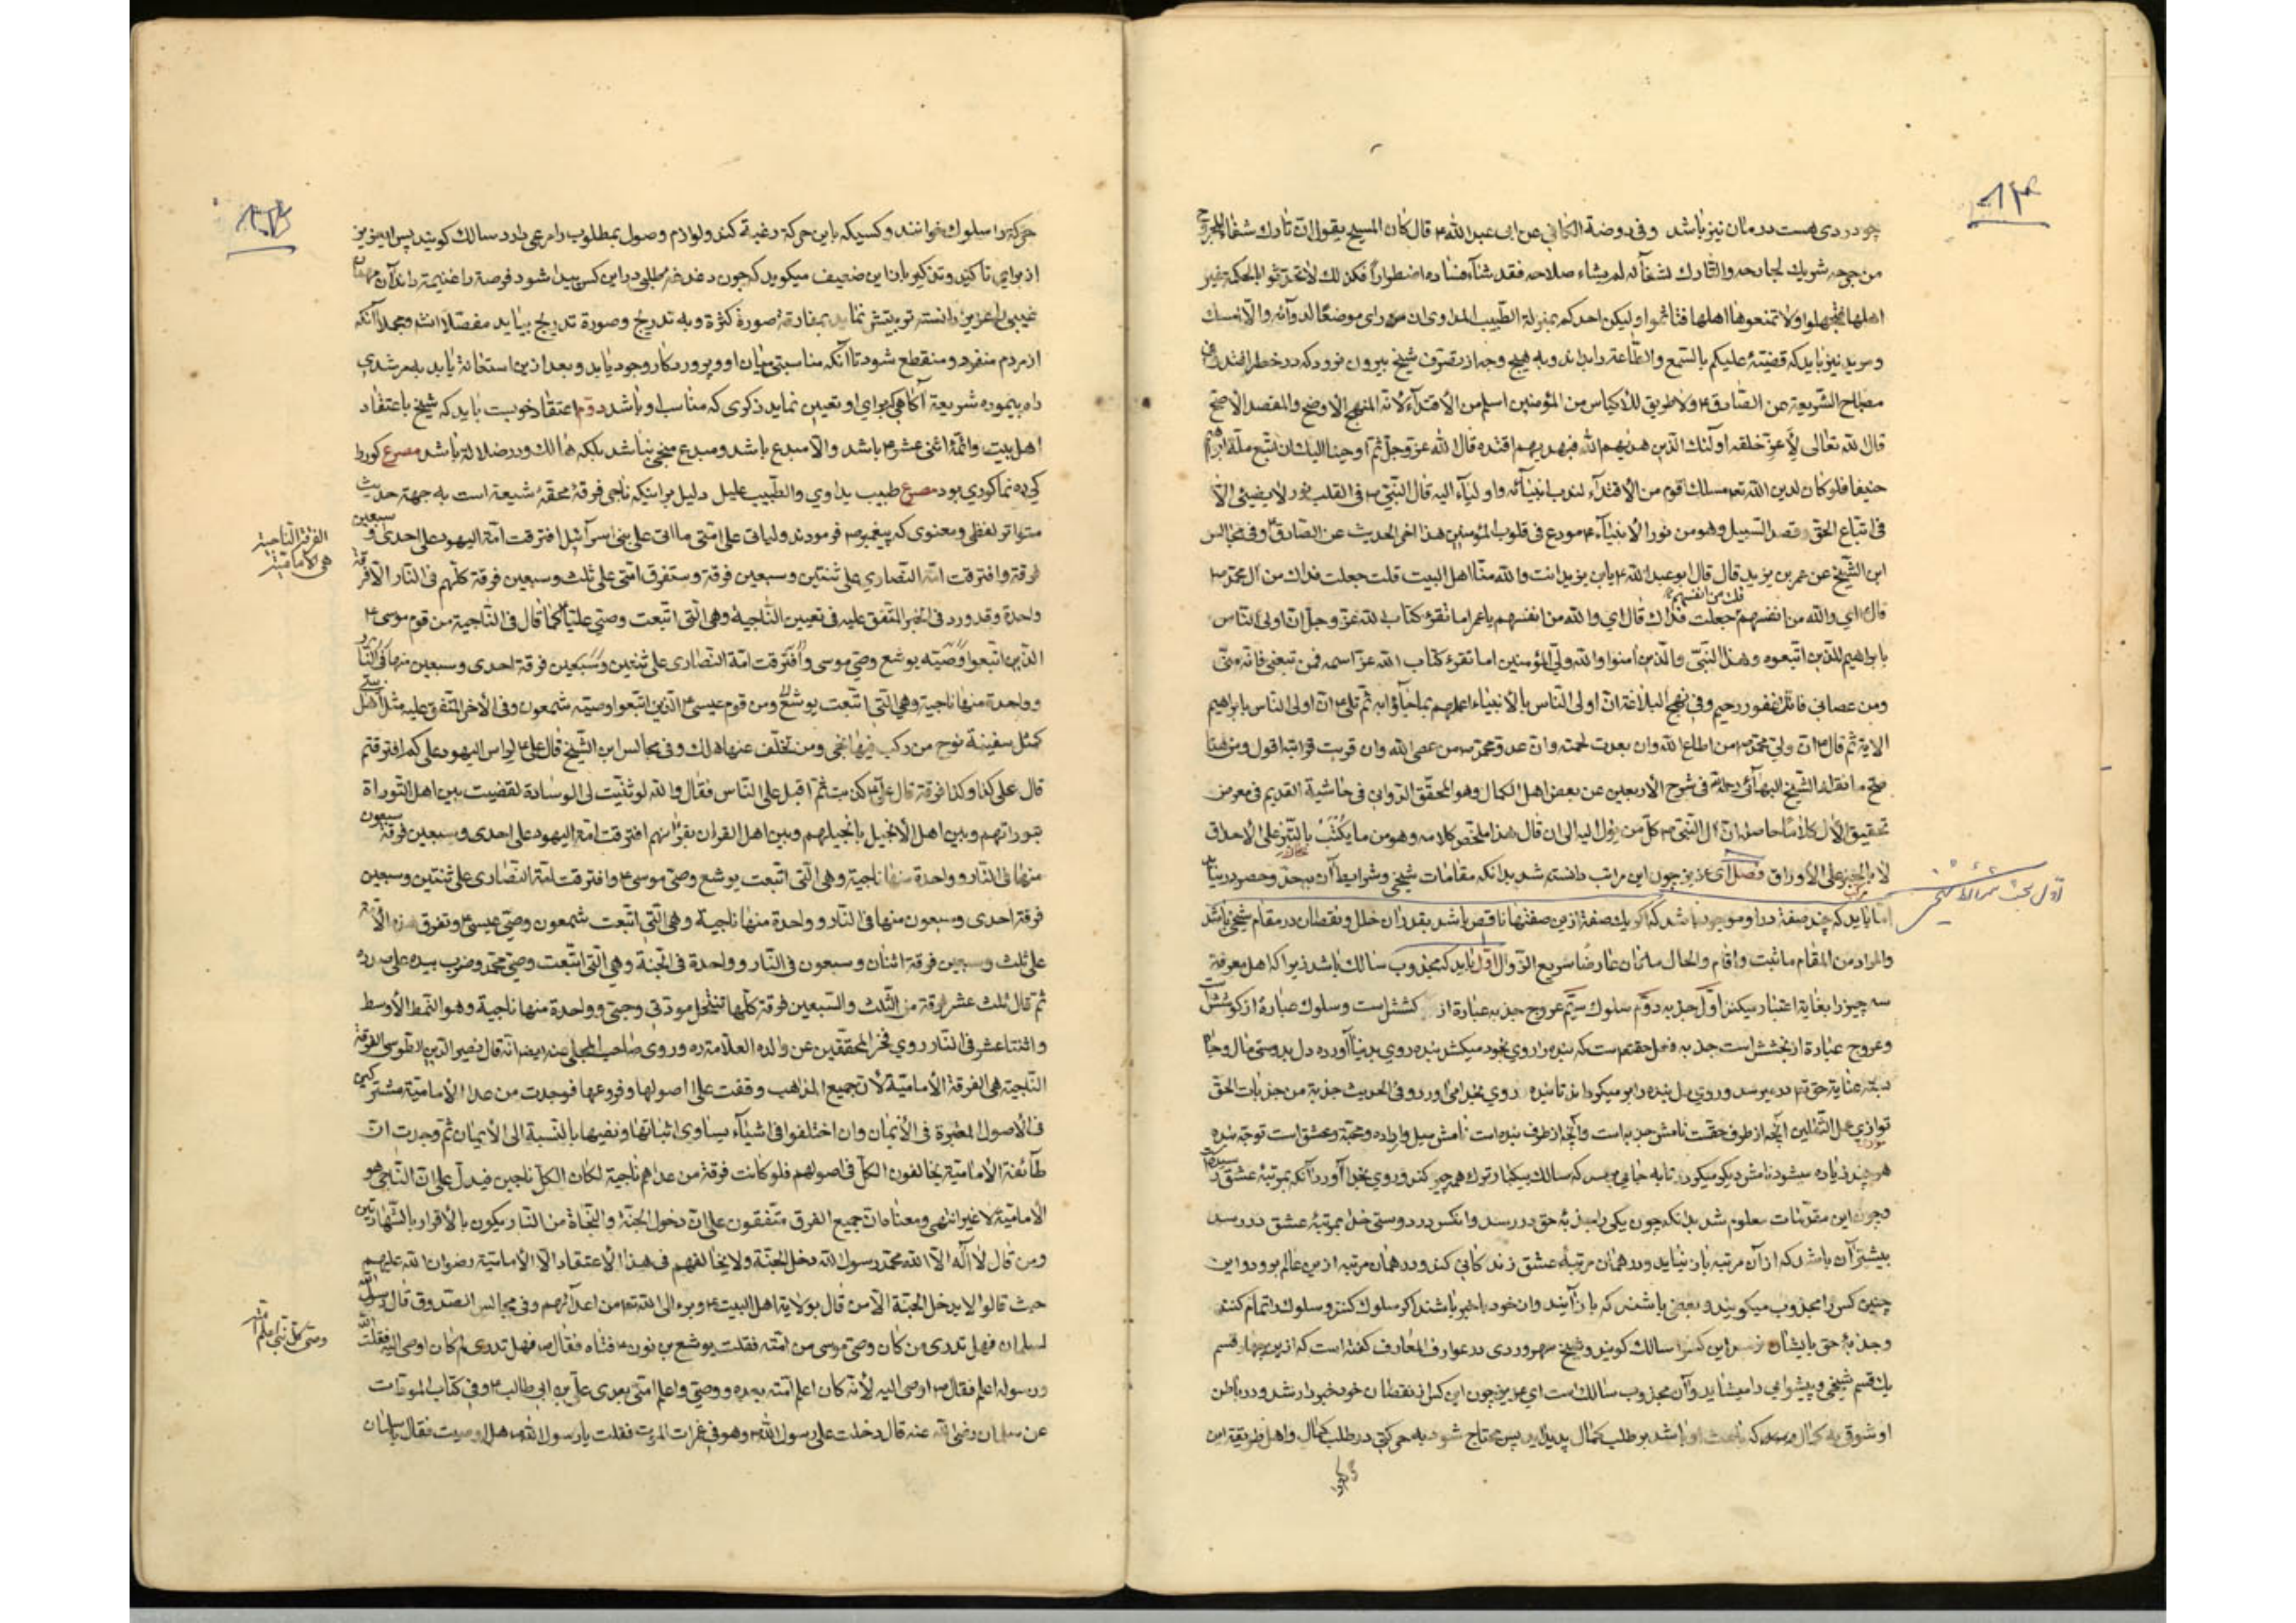 چو دردی هست درمان نیز باشد وفی روضة الکافی عن ابی عبدالله ۴ قال کان المسیح یقول ان تارك شفاء المجروح
من جرحه شریك لجارحه والتارك لشفائه لم یشاء صلاحه فقد شاء فساده اضطراراً فکذلك لا تحدثوا بالحکمة غیر
اهلها فتجهلوا ولا تمنعوها اهلها فتاثموا ولیکن احدکم بمنزلة الطبیب المداوی ان رای موضعًا لدوائه والا امسك
ومرید نیز باید که قضیّهٔ علیکم بالسّمع والطّاعة را بداند وبه هیچ وجه از تصرّف شیخ بیرون نرود که در خطر افتد
مصباح الشّریعه عن الصّادق ۴ ولا طریق للاکیاس من المؤمنین اسلم من الاقتدآء لانّه المنهج الاوضح والمقصد الاصحّ
قال الله تعالی لاعزّ خلقه اولئك الّذین هدیهم الله فبهدیهم اقتده قال الله عزّ وجلّ ثمّ اوحینا الیك ان اتّبع ملّة ابرهیم
حنیفا فلو کان لدین الله تع مسلك اقوم من الاقتدآء لندب انبیآئه واولیآء الیه قال النّبیّ فی القلب نور لا یضیئی الّا
فی اتّباع الحق وقصد السّبیل وهو من نور الانبیآء مودع فی قلوب المؤمنین هذا اخر الحدیث عن الصّادق وفی مجالس
ابن الشّیخ عن عمر بن یزید قال قال ابو عبدالله ۴ یابن یزید انت والله منّا اهل البیت قلت جعلت فداك من آل محمّد
قال ای والله من انفسهم قلت من انفسهم جعلت فداك قال ای والله من انفسهم یا عمر اما تقرء کتاب الله عزّ وجلّ ان اولی النّاس
بابراهیم للّذین اتّبعوه وهذا النّبیّ والّذین آمنوا والله ولیّ المؤمنین اما تقرء کتاب الله عزّ اسمه فمن تبعنی فانّه منّی
ومن عصانی فانّك غفور رحیم وفی نهج البلاغة انّ اولی النّاس بالانبیاء اعلمهم بما جآؤا به ثمّ تلی ۴ انّ اولی النّاس بابراهیم
الایة ثم قال ۴ انّ ولیّ محمّد من اطاع الله وان بعدت لحمته وانّ عدوّ محمّد من عصی الله وان قربت قرابته اقول ومن هنا
صحّ ما نقله الشّیخ البهآئی رحمه فی شرح الاربعین عن بعض اهل الکمال وهو المحقّق الدّوانی فی حاشیة القدیم فی معرض
تحقیق الآل کلامًا حاصله انّ آل النّبیّ کلّ من یؤل الیه الی ان قال هذا ملخّص کلامه وهو من ما یکتب بالتّبر علی الاحداق
لا بالحبر علی الاوراق فصل ای عزیز چون این مراتب دانسته شد بدانکه مقامات شیخی وشرایط آن بیحدّ وحصر است
اما باید که چند صفة در او موجود باشد که اگر یك صفة ازین صفتها ناقص باشد بقدر آن خلل ونقصان در مقام شیخی باشد
والمراد من المقام ما ثبت واقام والحال ما کان عارضًا سریع الزّوال اوّل باید که مجذوب سالك باشد زیرا که اهل معرفة
سه چیز را بغایة اعتبار میکنند اوّل جذبه دوّم سلوك سیّم عروج جذبه عبارة از کشش است وسلوك عبارة از کوشش
وعروج عبارة از بخشش است جذبه فعل حقتع است که بنده را روی بخود میکشد بنده روی بدنیا آورده دل بدوستی مال وجاه
بسته عنایة حق تع در میرسد وروی دل بنده را بر میگرداند تا بنده روی بخدا می اورد وفی الحدیث جذبة من جذبات الحق
توازی عمل الثقلین آنچه از طرف حقست نامش جذبه است وآنچه از طرف بنده است نامش میل واراده ومحبّة وعشق است توجّه بنده
هر چند زیاده میشود نامش دیگر میگردد تا به جایی برسد که سالك بیکبار ترك همه چیز کند وروی بخدا آورد آنکه بمرتبهٔ عشق رسد
وچون این مقدمات معلوم شد بدانکه چون یکی را جذبهٔ حق در رسد وانکس در دوستی خدا بمرتبهٔ عشق در رسد
بیشتر آن باشد که از آن مرتبه باز نیاید ودر همان مرتبهٔ عشق زندکانی کند ودر همان مرتبه ازین عالم برود واین
چنین کس را مجذوب میکویند وبعضی باشند که باز آیند وان خود باخبر باشند اکر سلوك کنند وسلوك را تمام کنند
وجذبهٔ حق بایشان رسد این کس را سالك کویند وشیخ سهروردی در عوارف المعارف کفته است که ازین چهار قسم
یك قسم شیخی وپیشوایی را میشاید وآن مجذوب سالك است ای عزیز چون این کس از نقصان خود خبردار شد ودر باطن
او شوق به کمال که باعث او باشد بر طلب کمال پدید اید پس محتاج شود به حرکتی در طلب کمال واهل طریقة این
حرکة را
اوّل بحث شرائط شیخی
حرکة را سلوك خوانند وکسیکه باین حرکة رغبة کند ولوازم وصول بمطلوب را مرعی دارد سالك کویند پس ایعزیز من
از برای تاکید وتذکیر بان این ضعیف میکوید که چون دغدغه مطلبی در این کس پیدا شود فرصة را غنیمة داند آن مهمان
غیبی را عزیز دانسته تربیتش نماید بمفارقة صورة کثرة وبه تدریج وصورة تدریج بیاید مفصّلا انشه ومجملا آنکه
از مردم منفرد ومنقطع شود تا آنکه مناسبتی میان او وپروردکار وجود یابد وبعد ازین استعانة یابد به مرشدی
راه پیموده شریعة آکاهی که برای او تعیین نماید ذکری که مناسب او باشد دوّم اعتقاد خوبست باید که شیخ با عتقاد
اهل بیت وائمّهٔ اثنی عشر ۴ باشد والّا مبدع باشد ومبدع منجی نباشد بلکه هالك ودر ضلالة باشد مصرع کور را
کی ره نما کوری بود مصرع طبیب یداوی والطّبیب علیل دلیل براینکه ناجی فرقهٔ محقّهٔ شیعة است به جهة حدیث
متواتر لفظی ومعنوی که پیغمبر ص فرمودند ولیاتی علی امّتی ما اتی علی بنی اسرآئیل افترقت امّة الیهود علی احدی وسبعین
فرقة وافترقت امّة النّصاری علی ثنتین وسبعین فرقة وستفرق امّتی علی ثلث وسبعین فرقة کلّهم فی النّار الّا فرقة
واحدة وقد ورد فی الخبر المتّفق علیه فی تعیین النّاجیة وهی الّتی اتّبعت وصیّی علیّا کما قال فی النّاجیة من قوم موسی ۴
الّذین اتّبعوا وصیّه یوشع وصی موسی وافترقت امّة النّصاری علی ثنتین وسبعین فرقة احدی وسبعین منها فی النّار
وواحدة منها ناجیة وهی الّتی اتّبعت یوشع ومن قوم عیسی ۴ الّذین اتّبعوا وصیّه شمعون وفی الاخر المتّفق علیه مثل اهل بیتی
کمثل سفینة نوح من رکب فیها نجی ومن تخلّف عنها هلك وفی مجالس ابن الشّیخ قال علی ۴ لراس الیهود علی کم افترقتم
قال علی کذا وکذا فرقة قال علی ۴ کذبت ثمّ اقبل علی النّاس فقال والله لو ثنّیت لی الوسادة لقضیت بین اهل التّوراة
بتوراتهم وبین اهل الانجیل بانجیلهم وبین اهل القران بقرانهم افترقت امّة الیهود علی احدی وسبعین فرقة سبعون
منها فی النّار وواحدة منها ناجیة وهی الّتی اتّبعت یوشع وصی موسی ۴ وافترقت امّة النّصاری علی ثنتین وسبعین
فرقة احدی وسبعون منها فی النّار وواحدة منها ناجیة وهی الّتی اتّبعت شمعون وصیّ عیسی ۴ وتفرق هذه الامّة
علی ثلث وسبعین فرقة اثنان وسبعون فی النّار وواحدة فی الجنّة وهی الّتی اتّبعت وصیّ محمّد وضرب بیده علی صدره
ثمّ قال ثلث عشر فرقة من الثّلث والسّبعین فرقة کلّها تنتحل مودّتی وحبّی وواحدة منها ناجیة وهو النّمط الاوسط
واثنتا عشر فی النّار روی فخر المحققین عن والده العلّامة ره وروی صاحب المجلی عنه ایضا انّه قال نصیر الدّین الطّوسی الفرقة
النّاجیة هی الفرقة الامامیّة لانّ جمیع المذاهب وقفت علی اصولها وفروعها فوجدت من عدا الامامیّة مشترکین
فی الاصول المعتبرة فی الایمان وان اختلفوا فی اشیآء یساوی اثباتها ونفیها بالنّسبة الی الایمان ثمّ وجدت انّ
طآئفة الامامیّة یخالفون الکلّ فی اصولهم فلو کانت فرقة من عداهم ناجیة لکان الکلّ ناجین فیدلّ علی انّ النّاجی هو
الامامیّة لا غیر انتهی ومعناه انّ جمیع الفرق متّفقون علی انّ دخول الجنّة والنّجاة من النّار یکون بالاقرار بالشّهادتین
ومن قال لا اله الا الله محمّد رسول الله دخل الجنّة ولا یخالفهم فی هذا الاعتقاد الّا الامامیّة رضوان الله علیهم
حیث قالوا لا یدخل الجنّة الّا من قال بولایة اهل البیت ۴ وبرء الی الله تع من اعدآئهم وفی مجالس الصّدوق قال رسول الله
لسلمان فهل تدری من کان وصیّ موسی من امّته فقلت یوشع بن نون ۴ فتاه فقال ص فهل تدری لم کان اوصی الیه فقلت الله
ورسوله اعلم فقال ص اوصی الیه لانّه کان اعلم امّته بعده ووصیّی واعلم امّتی بعدی علی بن ابی طالب ۴ وفی کتاب المودّات
عن سلمان رضی الله عنه قال دخلت علی رسول الله ص وهو فی غمرات الموت فقلت یا رسول الله ص هل اوصیت فقال یا سلمان
الفرقة النّاجیة
هی الامامیّة
وصیّ کل نبی اعلم امّته